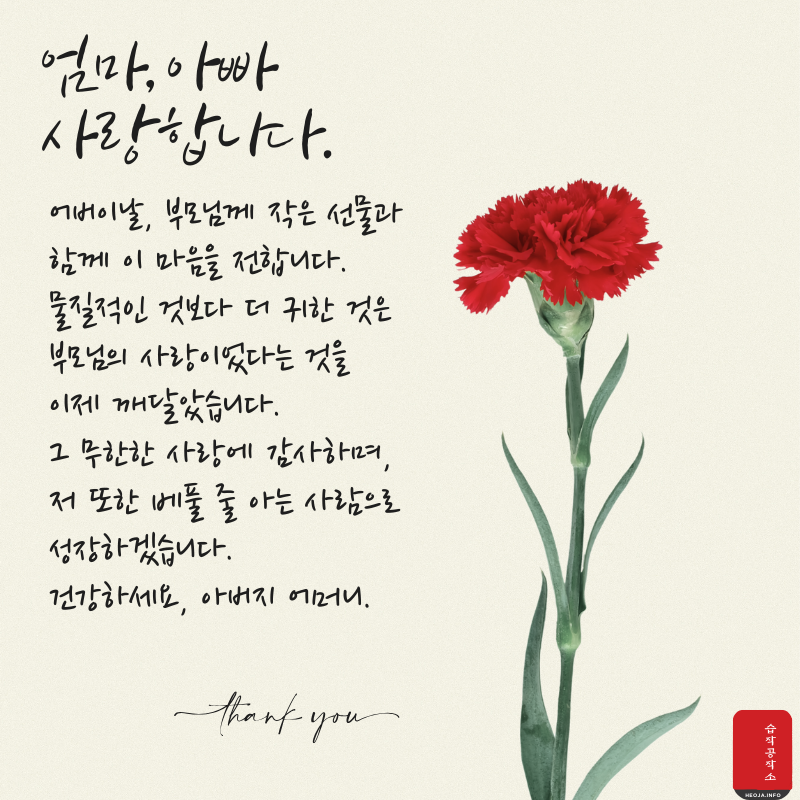 엄마, 아빠
사랑합니다.
어버이날, 부모님께 작은 선물과
함께 이 마음을 전합니다.
물질적인 것보다 더 귀한 것은
부모님의 사랑이었다는 것을
이제 깨달았습니다.
그 무한한 사랑에 감사하며,
저 또한 베풀 줄 아는 사람으로
성장하겠습니다.
건강하세요, 아버지 어머니.
thank you
습작공작소
HEOJA.INFO